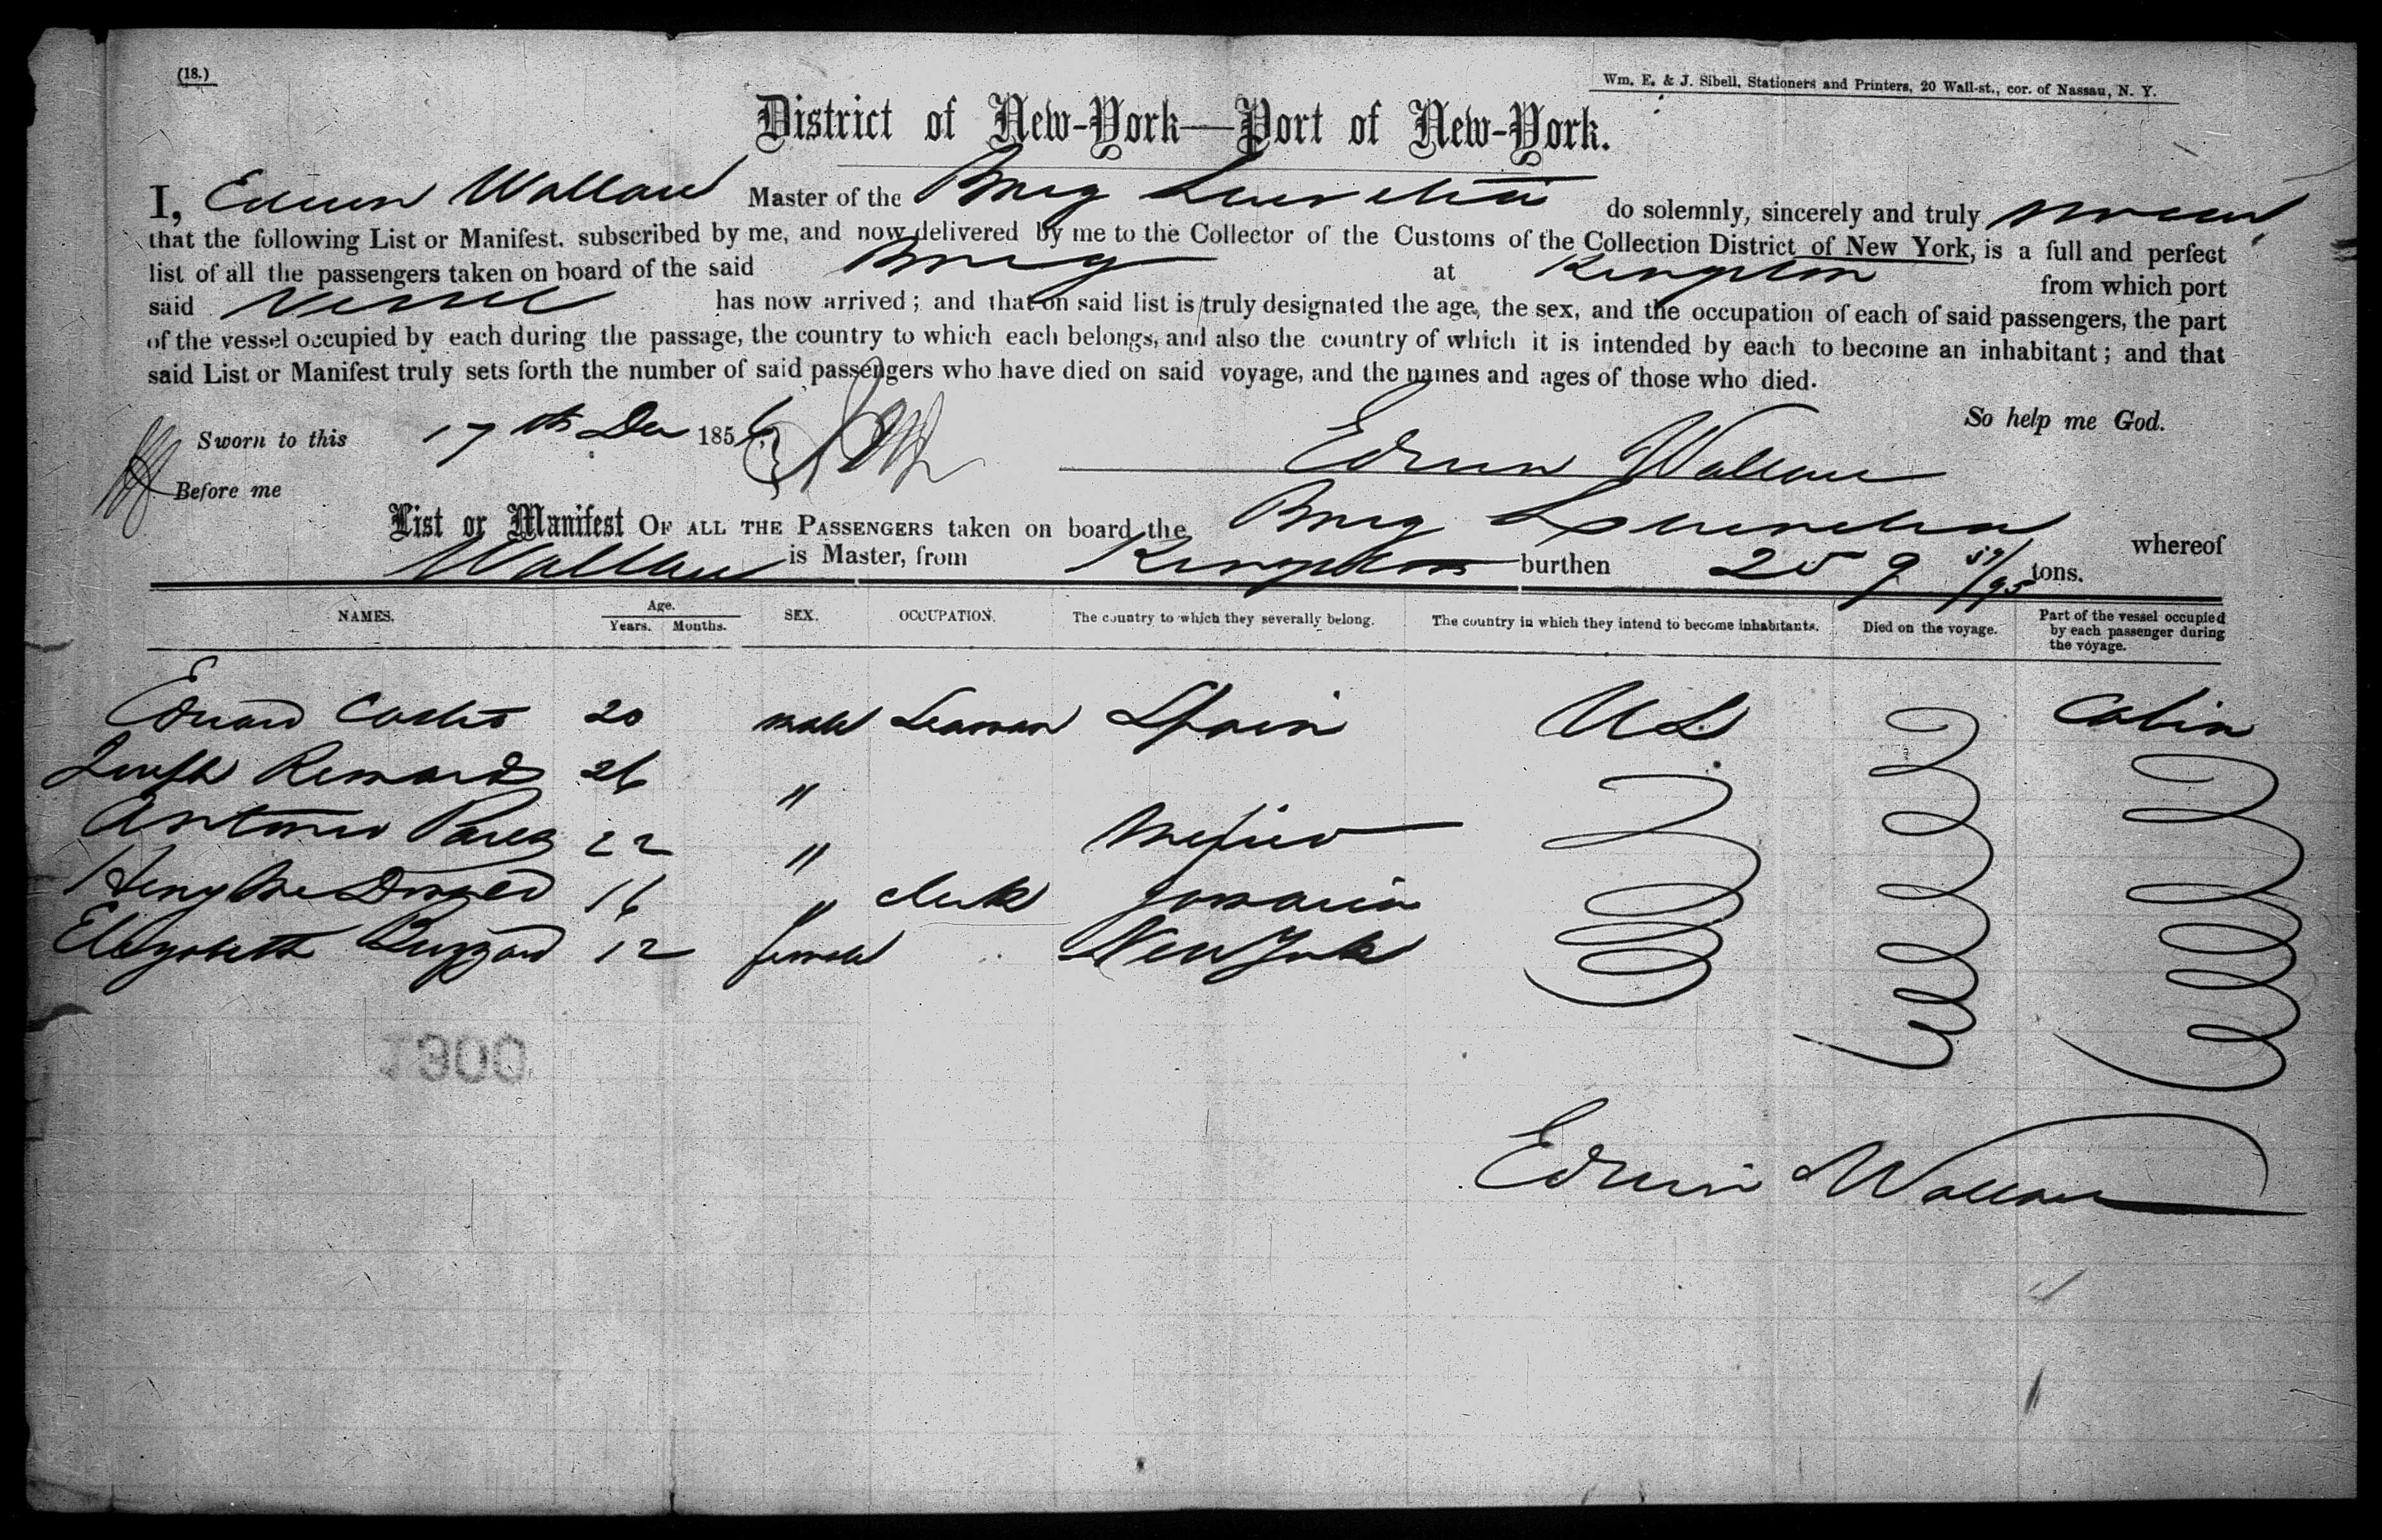 (18.)
Wm. E. & J. Sibell, Stationers and Printers, 20 Wall-st., cor. of Nassau, N. Y.
District of New-York—Port of New-York.
I, Edwin Wallace Master of the Brig do solemnly, sincerely and truly swear
that the following List or Manifest, subscribed by me, and now delivered by me to the Collector of the Customs of the Collection District of New York, is a full and perfect
list of all the passengers taken on board of the said Brig at Kingston from which port
said Vessel has now arrived; and that on said list is truly designated the age, the sex, and the occupation of each of said passengers, the part
of the vessel occupied by each during the passage, the country to which each belongs, and also the country of which it is intended by each to become an inhabitant; and that
said List or Manifest truly sets forth the number of said passengers who have died on said voyage, and the names and ages of those who died.
So help me God.
Sworn to this 17th Dec 1856
Edwin Wallace
Before me
List or Manifest OF ALL THE PASSENGERS taken on board the Brig whereof
Wallace is Master, from Kingston burthen 259 59/95 tons.
NAMES. Age. Years. Months. SEX. OCCUPATION. The country to which they severally belong. The country in which they intend to become inhabitants. Died on the voyage. Part of the vessel occupied by each passenger during the voyage.
Edward 20 male Seaman Spain U S Cabin
Joseph 26 "
Antonio 22 " Mexico
Henry McDonald 16 " clerk Jamaica
Elizabeth Buzzard 12 female New York
Edwin Wallace